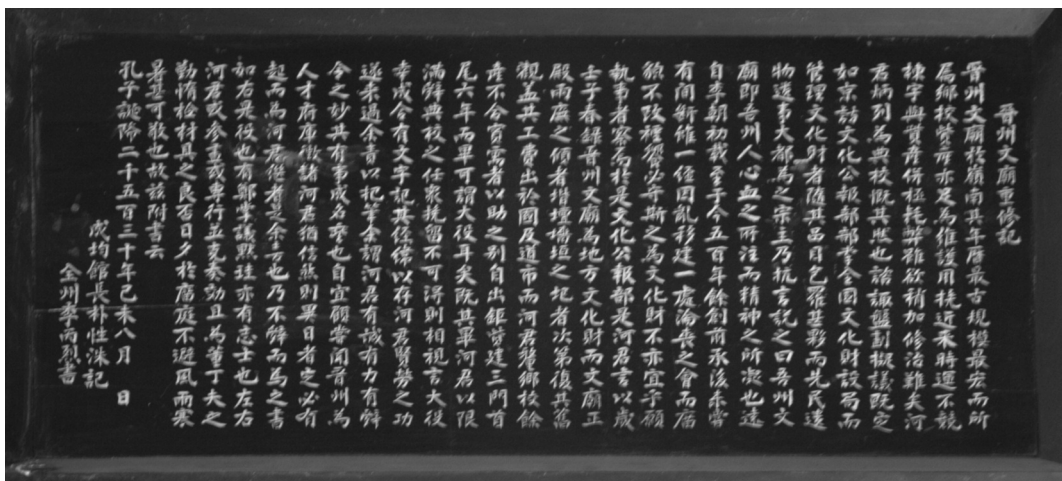 晋州文廟重修記
晋州文廟於嶺南其年厝最古規模最宏而所
属鄉校營產亦足為維護用挽近来時運不競
棟宇與貲產傍極耗弊雖欲稍加修治難矣河
君炳列為典校慨其然也諮諏盤劃擬議既定
如京訪文化公報部部全國文化財設局而
管理文化財者隨其品目羅甚夥而先民遠
物遺事大都為之宗主乃抗言説之曰吾州文
廟即吾州人心血之所注而精神之所凝也遠
自李朝初哉至于今五百年餘創前承後未嘗
有間斷維一経亂移建一處淪喪之會而廟
貌不改禋饗必守斯之為文化財不亦宜乎願
執事者察焉於是文化公報部是河君言以歲
壬子春錄晋州文廟為地方文化財而文廟正
殿兩廡之傾者墻垣之圯者次第復其舊
觀盖其工費出於國及道市而河君鄉校餘
產不合實需者以助之别自出鉅貲建三門首
尾六年而畢可謂大役耳矣既其畢河君以限
滿辞典校之任衆挽留不可得則相視言大役
幸成合有文字記其往績以存河君賢勞之功
遂来過余責以記筆余謂河君有誠有力有辞
今之妙其有事成名譽也自宜顧嘗聞晋州為
人才府庫徵諸河君猶信然則異日者定必有
起而為河君继者是余言也乃不辞而為之書
如右是役也有鄭掌議點珪亦有志士也左右
河君或参畫或專行並克奏効且為董丁夫之
勤惰檢材具之良否日夕於廟庭不避風雨寒
暑其可敬也故該附書云
孔子誕降二千五百三十年己未八月 日
成均館長朴性洙記
全州李丙烈書